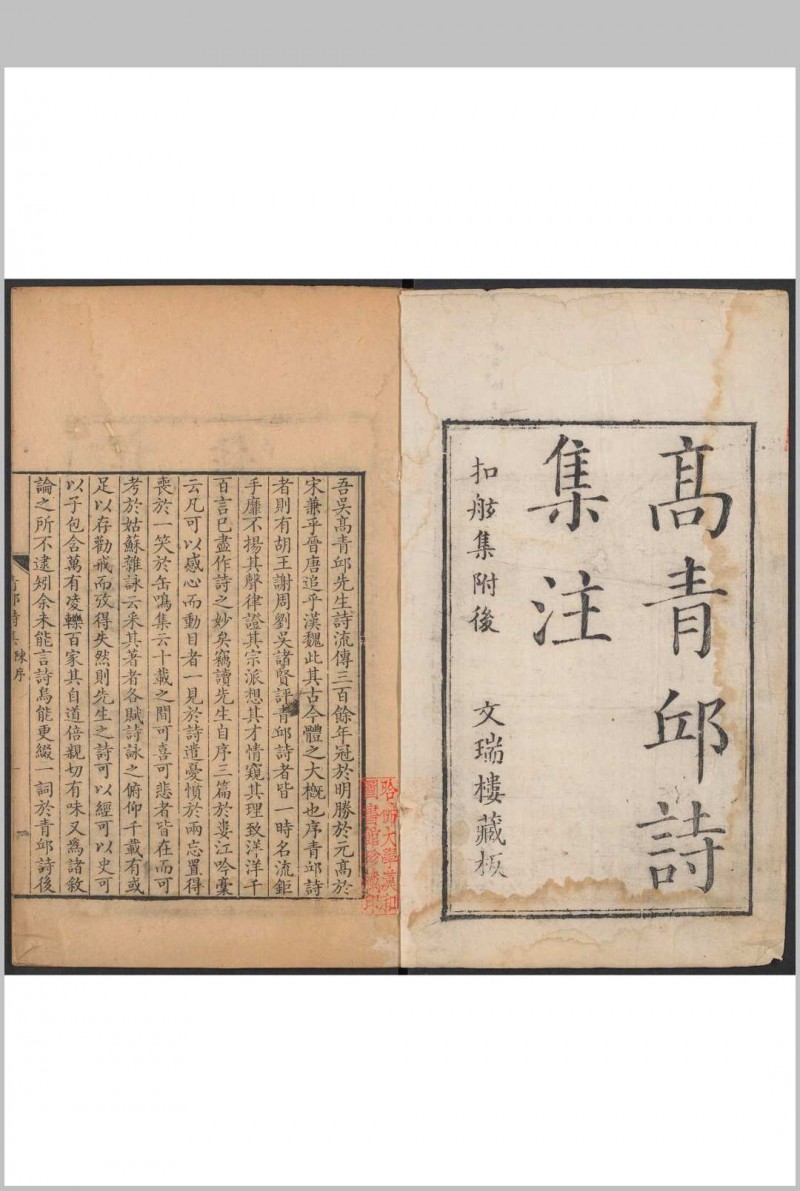 高青邱詩
集注
扣舷集附後
文瑞樓藏板
吾吳髙青邱先生詩流傳三百餘年冠於明勝於元髙於
宋兼乎晉唐追乎漢魏此其古今體之大概也序青邱詩
者則有胡王謝周劉吳諸賢評青邱詩者皆一時名流鉅
手靡不揚其聲律證其宗派想其才情窺其理致洋洋千
百言已盡作詩之妙矣竊讀先生自序三篇於婁江吟稾
云凡可以感心而動目者一見於詩遣憂憤於兩忘置得
喪於一笑於缶鳴集云十載之間可喜可悲者皆在而可
考於姑蘇雜詠云采其著者各賦詩詠之俯仰千載有或
足以存勸戒而攷得失然則先生之詩可以經可以史可
以子包含萬有凌轢百家其自道倍親切有味又爲諸敘
論之所不逮矧余未能言詩烏能更綴一詞於青邱詩後
青邱詩集 陳序 一
哈佛大學漢和
圖書館珍藏印